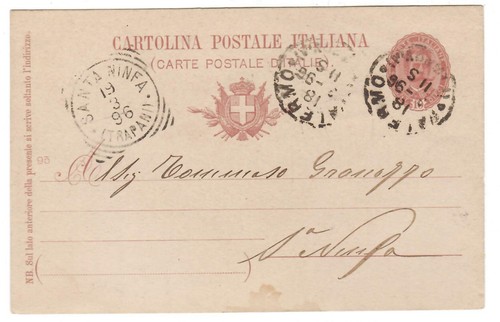 CARTOLINA POSTALE ITALIANA
(CARTE POSTALE D'ITALIE)
SANTA NINFA
19
3
96
(TRAPANI)
PALERMO
18
3-96
11 S
PALERMO
18
3-96
11 S
95
Tommaso
Sta Ninfa
NB. Sul lato anteriore della presente si scrive soltanto l'indirizzo.